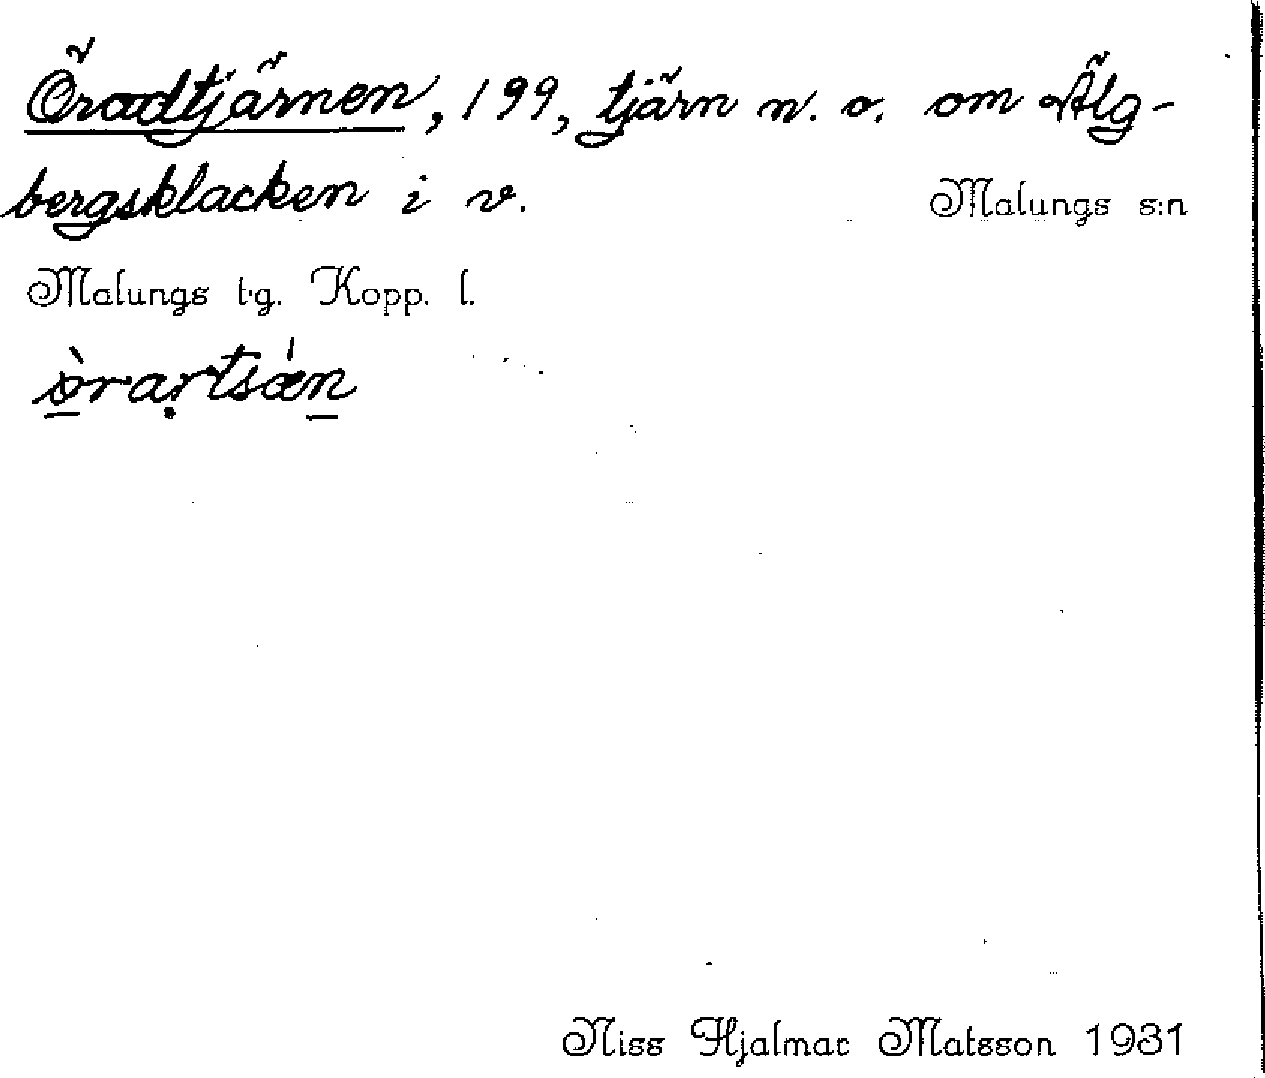 Öradtjärnen, 199, tjärn n. o. om Älg-
bergsklacken i v. Malungs s:n
Malungs t·g. Kopp. l.
ò̱rạrtsǽṉ
Niss Hjalmar Matsson 1931